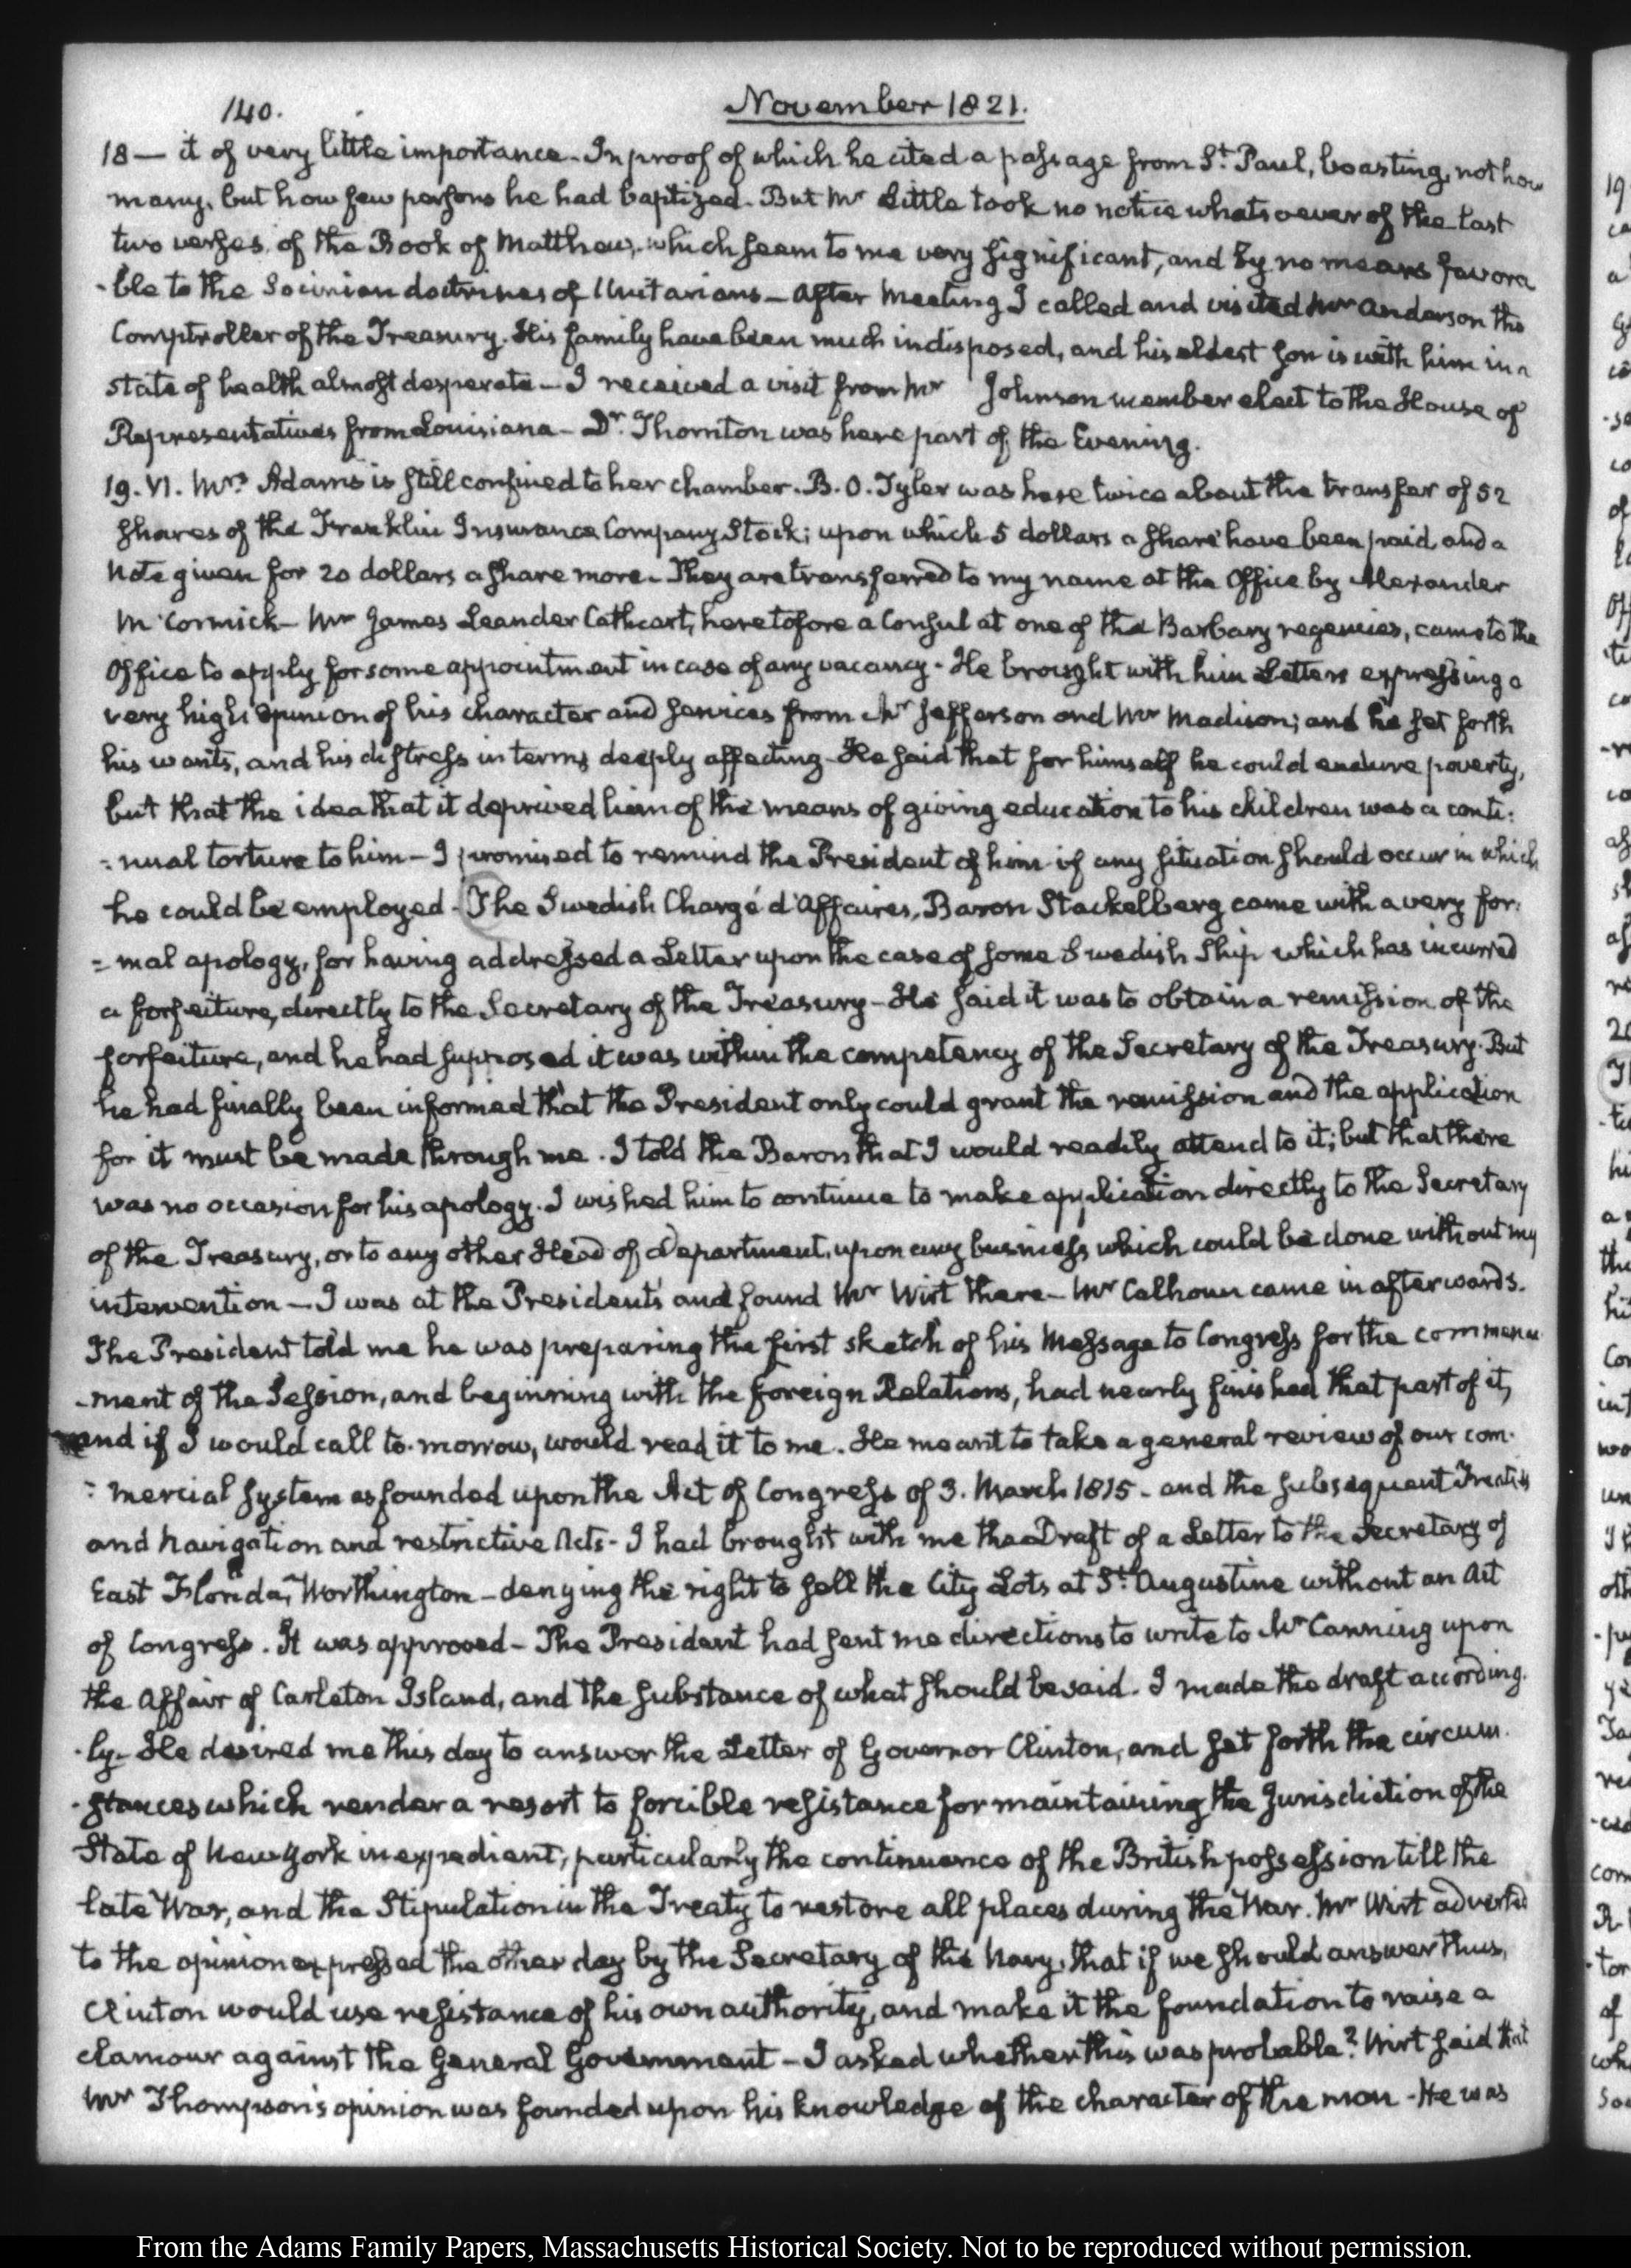 140. November 1821.
18 — it of very little importance. In proof of which he cited a passage from St. Paul, boasting, not how
many, but how few persons he had baptized. But Mr Little took no notice whatsoever of the last
two verses of the Book of Matthew, which seem to me very significant, and by no means favora
-ble to the Socinian doctrines of Unitarians — After Meeting I called and visited Mr Anderson the
Comptroller of the Treasury. His family have been much indisposed, and his eldest son is with him in a
state of health almost desperate — I received a visit from Mr Johnson member elect to the House of
Representatives from Louisiana — Dr. Thornton was here part of the Evening.
19. VI. Mrs. Adams is still confined to her chamber. B. O. Tyler was here twice about the transfer of 52
shares of the Franklin Insurance Company Stock; upon which 5 dollars a share have been paid and a
Note given for 20 dollars a share more. They are transferred to my name at the Office by Alexander
McCormick — Mr James Leander Cathcart, heretofore a Consul at one of the Barbary regencies, came to the
Office to apply for some appointment in case of any vacancy. He brought with him Letters expressing a
very high opinion of his character and services from Mr Jefferson and Mr Madison; and he set forth
his wants, and his distress in terms deeply affecting. He said that for himself he could endure poverty,
but that the idea that it deprived him of the means of giving education to his children was a conti:
:nual torture to him — I promised to remind the President of him if any situation should occur in which
he could be employed. The Swedish Chargé d'Affaires, Baron Stackelberg came with a very for:
=mal apology, for having addressed a Letter upon the case of some Swedish Ship which has incurred
a forfeiture, directly to the Secretary of the Treasury — He said it was to obtain a remission of the
forfeiture, and he had supposed it was within the competency of the Secretary of the Treasury. But
he had finally been informed that the President only could grant the remission and the application
for it must be made through me. I told the Baron that I would readily attend to it; but that there
was no occasion for his apology. I wished him to continue to make application directly to the Secretary
of the Treasury, or to any other Head of Department, upon any business which could be done without my
intervention — I was at the President's and found Mr Wirt there — Mr Calhoun came in afterwards.
The President told me he was preparing the first sketch of his Message to Congress for the commence
-ment of the Session, and beginning with the foreign Relations, had nearly finished that part of it,
and if I would call to-morrow, would read it to me. He meant to take a general review of our com-
:mercial system as founded upon the Act of Congress of 3. March 1815 - and the subsequent Treaties
and navigation and restrictive Acts - I had brought with me the Draft of a Letter to the Secretary of
East Florida, Worthington — denying the right to sell the City Lots at St. Augustine without an Act
of Congress. It was approved — The President had sent me directions to write to Mr Canning upon
the Affair of Carleton Island, and the substance of what should be said. I made the draft according.
-ly — He desired me this day to answer the Letter of Governor Clinton, and set forth the circum.
-stances which render a resort to forcible resistance for maintaining the Jurisdiction of the
State of New York inexpedient; particularly the continuance of the British possession till the
late War, and the Stipulation in the Treaty to restore all places during the War. Mr Wirt adverted
to the opinion expressed the other day by the Secretary of the Navy, that if we should answer thus,
Clinton would use resistance of his own authority, and make it the foundation to raise a
clamour against the General Government — I asked whether this was probable? Wirt said that
Mr Thompson's opinion was founded upon his knowledge of the character of the man — He was
From the Adams Family Papers, Massachusetts Historical Society. Not to be reproduced without permission.